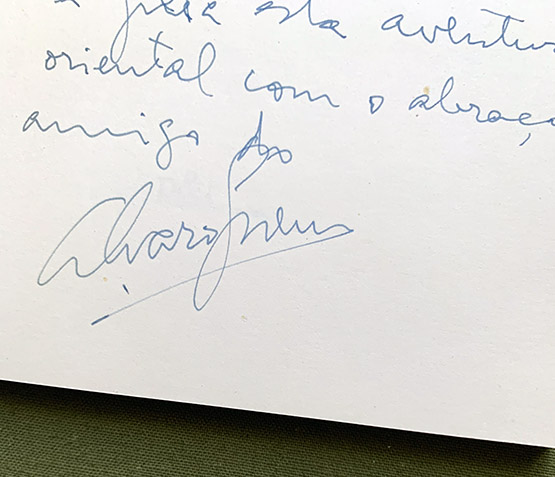 esta aventur
oriental com o abraç
amigo do
Alvaro